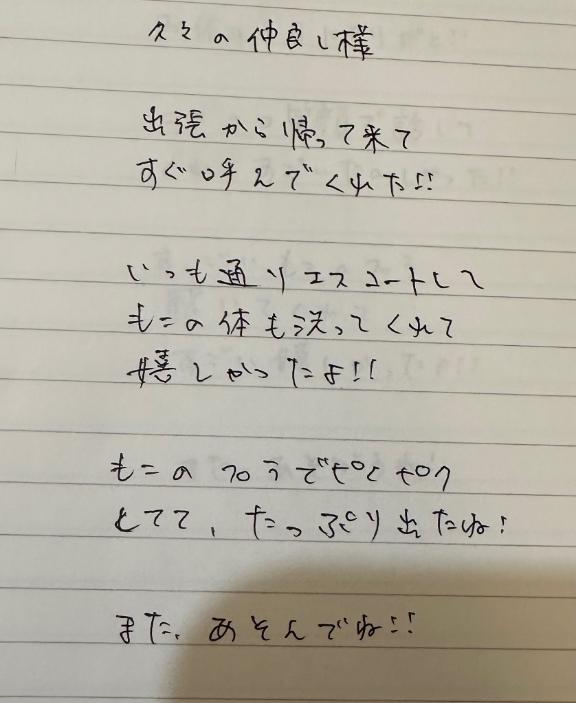 久々の仲良し様
出張から帰って来て
すぐ呼んでくれた!!
いつも通りエスコートして
もこの体も洗ってくれて
嬉しかったよ!!
もこのフロうで
とてて、たっぷり出たね!
また、あそんでね!!